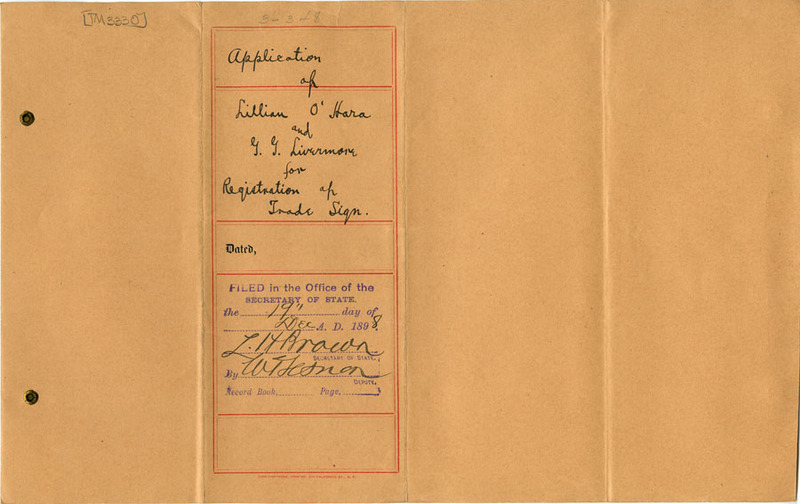 [TM3330]
Application
of
Lillian O'Hara
and
G. G. Livermore
for
Registration of
Trade Sign.
Dated,
FILED in the Office of the
SECRETARY OF STATE.
the 19" day of
Dec A. D. 1898.
L. H. Brown
SECRETARY OF STATE,
By
DEPUTY.
Record Book, Page,